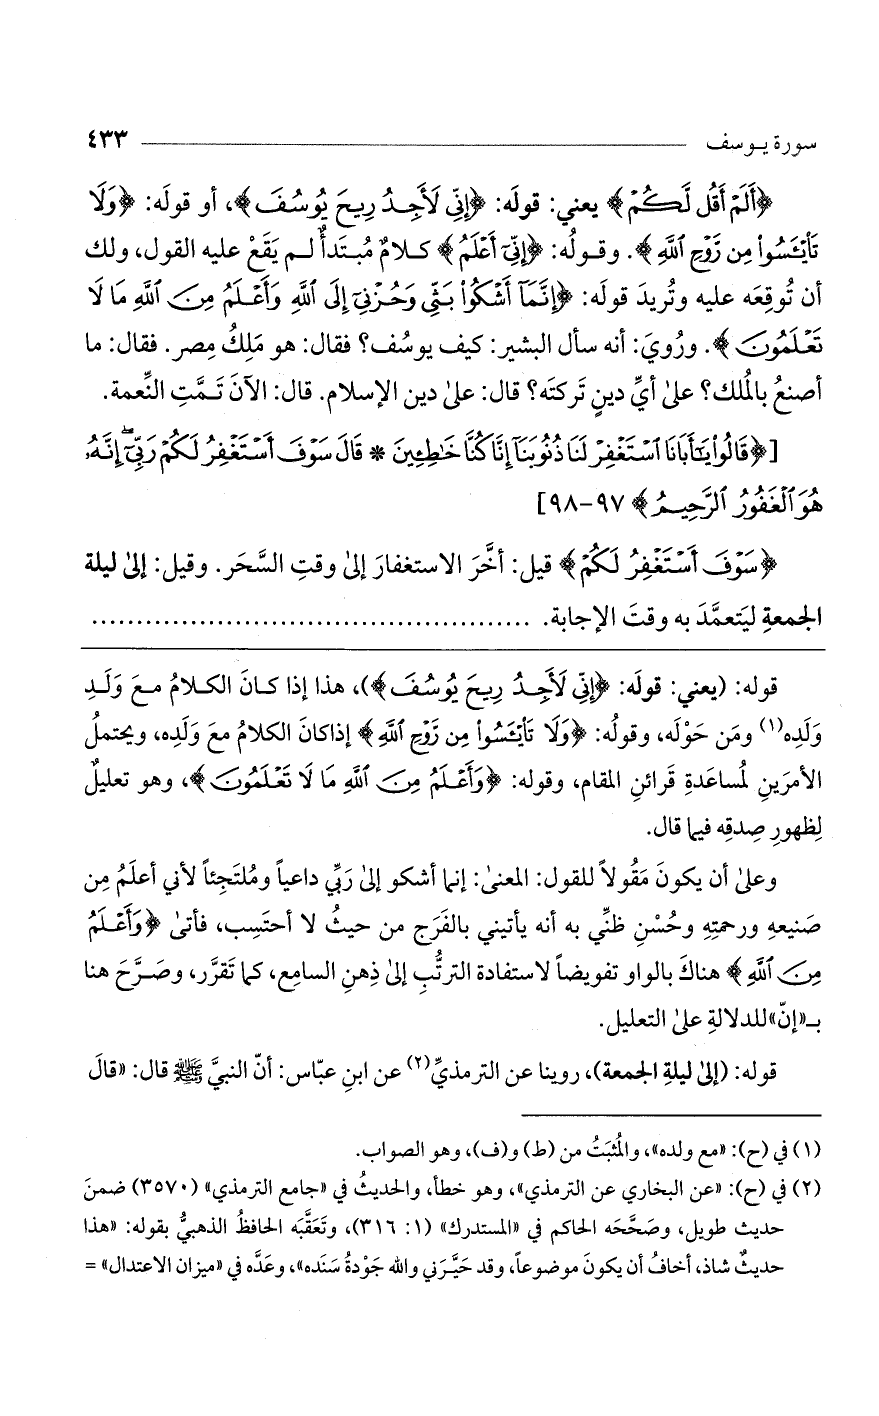 سورة يوسف ٤٣٣
﴿أَلَمْ أَقُل لَّكُمْ﴾ يعني: قولَه: ﴿إِنِّي لَأَجِدُ رِيحَ يُوسُفَ﴾، أو قولَه: ﴿وَلَا
تَاْيْـَٔسُوا۟ مِن رَّوْحِ ٱللَّهِ﴾. وقـولُه: ﴿إِنِّيٓ أَعْلَمُ﴾ كـلامٌ مُبـتَدأٌ لـم يَقَعْ عليه القول، ولك
أن تُوقِعَه عليه وتُريدَ قولَه: ﴿إِنَّمَآ أَشْكُوا۟ بَثِّي وَحُزْنِيٓ إِلَى ٱللَّهِ وَأَعْلَمُ مِنَ ٱللَّهِ مَا لَا
تَعْلَمُونَ﴾. ورُويَ: أنه سأل البشير: كيف يوسُف؟ فقال: هو مَلِكُ مِصر. فقال: ما
أصنعُ بالمُلك؟ علىٰ أيِّ دينٍ تَركتَه؟ قال: علىٰ دين الإسلام. قال: الآنَ تَـمَّتِ النِّعمة.
[﴿قَالُوا۟ يَـٰٓأَبَانَا ٱسْتَغْفِرْ لَنَا ذُنُوبَنَآ إِنَّا كُنَّا خَـٰطِـِٔينَ * قَالَ سَوْفَ أَسْتَغْفِرُ لَكُمْ رَبِّيٓ ۖ إِنَّهُۥ
هُوَ ٱلْغَفُورُ ٱلرَّحِيمُ﴾ ٩٧-٩٨]
﴿سَوْفَ أَسْتَغْفِرُ لَكُمْ﴾ قيل: أخَّرَ الاستغفارَ إلىٰ وقتِ السَّحَر. وقيل: إلىٰ ليلة
الجمعةِ ليَتعمَّدَ به وقتَ الإجابة. ..................................................
قوله: (يعني: قولَه: ﴿إِنِّي لَأَجِدُ رِيحَ يُوسُفَ﴾)، هذا إذا كـانَ الكـلامُ مـعَ وَلَـدِ
وَلَدِه(١) ومَن حَوْلَه، وقولُه: ﴿وَلَا تَاْيْـَٔسُوا۟ مِن رَّوْحِ ٱللَّهِ﴾ إذاكانَ الكلامُ معَ وَلَدِه، ويحتملُ
الأمرَين لمُساعَدةِ قَرائنِ المقام، وقوله: ﴿وَأَعْلَمُ مِنَ ٱللَّهِ مَا لَا تَعْلَمُونَ﴾، وهو تعليلٌ
لِظهورِ صِدقِه فيما قال.
وعلىٰ أن يكونَ مَقُولاً للقول: المعنىٰ: إنما أشكو إلىٰ رَبِّي داعياً ومُلتَجِئاً لأني أعلَمُ مِن
صَنيعهِ ورحمتِهِ وحُسْنِ ظنِّي به أنه يأتيني بالفَرَج من حيثُ لا أحتَسِب، فأتىٰ ﴿وَأَعْلَمُ
مِنَ ٱللَّهِ﴾ هناكَ بالواو تفويضاً لاستفادة الترتُّبِ إلىٰ ذِهنِ السامِع، كما تَقرَّر، وصَـرَّحَ هنا
بـ«إنّ»للدلالةِ علىٰ التعليل.
قوله: (إلىٰ ليلةِ الجمعة)، روينا عن الترمذيِّ(٢) عن ابنِ عبّاس: أنّ النبيَّ ﷺ قال: «قالَ
(١) في (ح): «مع ولده»، والمُثبَتُ من (ط) و(ف)، وهو الصواب.
(٢) في (ح): «عن البخاري عن الترمذي»، وهو خطأ، والحديثُ في «جامع الترمذي» (٣٥٧٠) ضمنَ
حديث طويل، وصَحَّحَه الحاكم في «المستدرك» (١: ٣١٦)، وتَعَقَّبَه الحافظُ الذهبيُّ بقوله: «هذا
حديثٌ شاذ، أخافُ أن يكونَ موضوعاً، وقد حَيَّـرَني والله جَوْدةُ سَنَده»، وعَدَّه في «ميزان الاعتدال» =